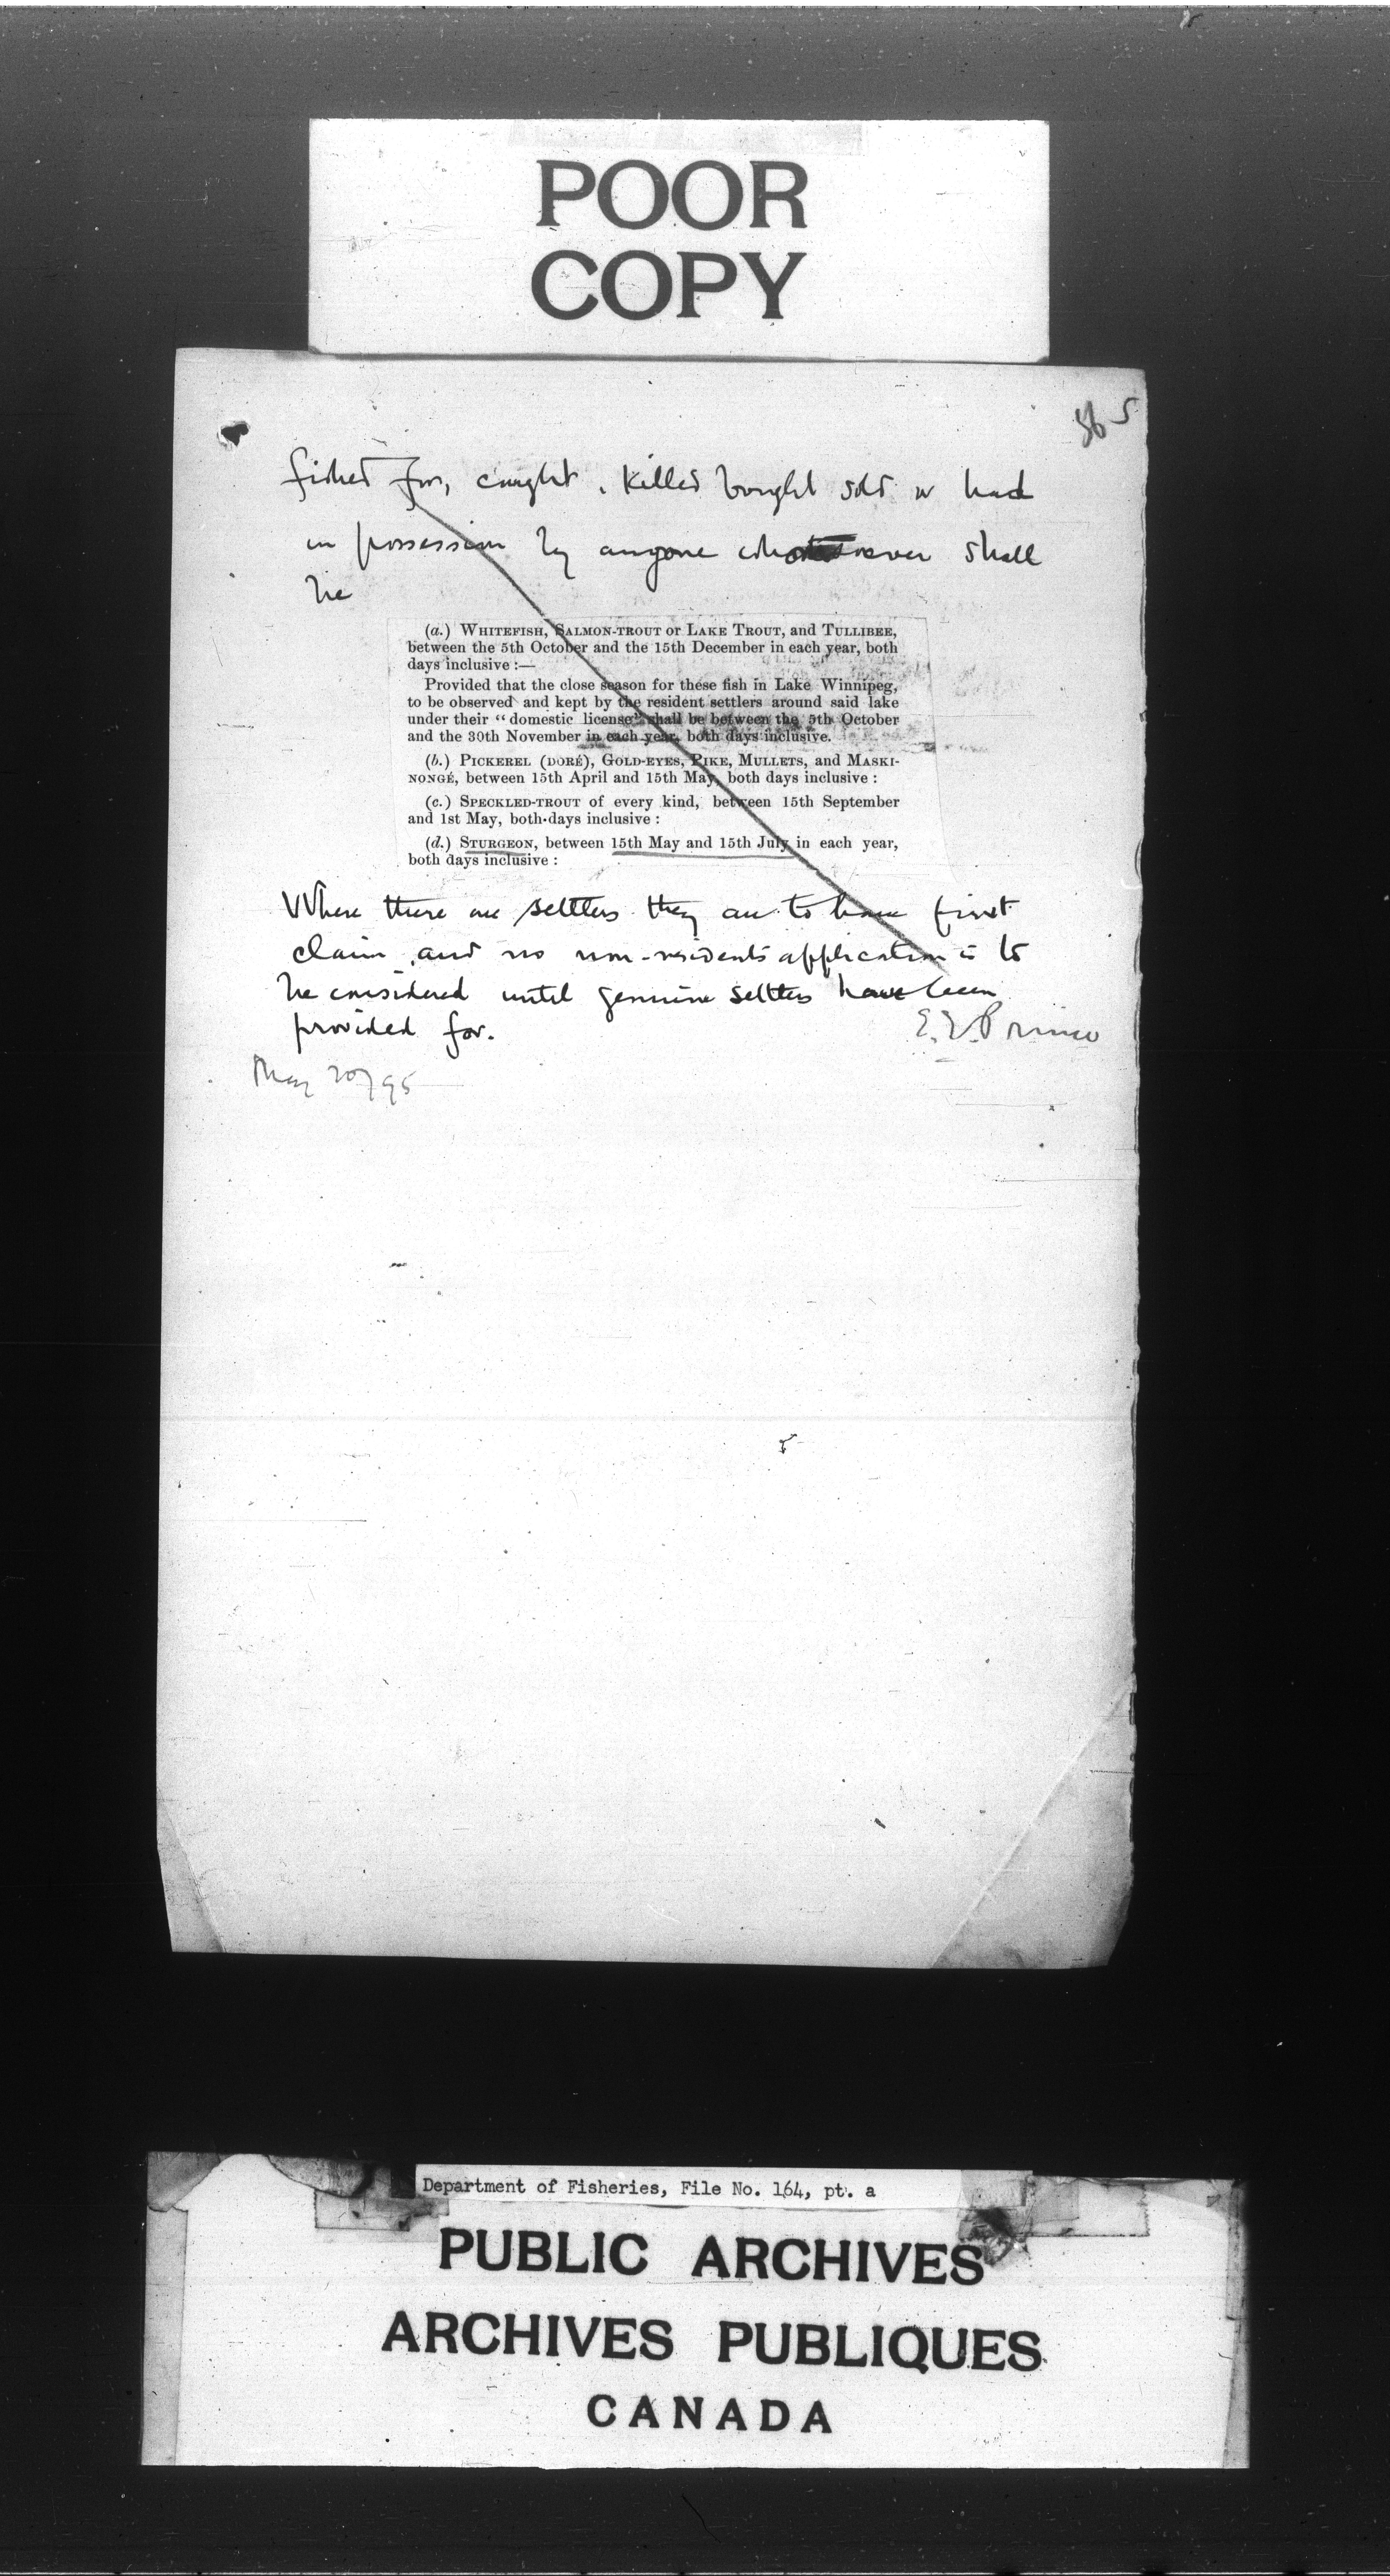 POOR
COPY
365
fished for, caught, killed bought sold or had
in possession by anyone whomsoever shall
be
(a.) WHITEFISH, SALMON-TROUT or LAKE TROUT, and TULLIBEE,
between the 5th October and the 15th December in each year, both
days inclusive :—
Provided that the close season for these fish in Lake Winnipeg,
to be observed and kept by the resident settlers around said lake
under their “domestic license” shall be between the 5th October
and the 30th November in each year, both days inclusive.
(b.) PICKEREL (DORÉ), GOLD-EYES, PIKE, MULLETS, and MASKI-
NONGÉ, between 15th April and 15th May, both days inclusive :
(c.) SPECKLED-TROUT of every kind, between 15th September
and 1st May, both days inclusive :
(d.) STURGEON, between 15th May and 15th July in each year,
both days inclusive :
Where there are settlers they are to have first
claim, and no non-residents application is to
be considered until genuine settlers have been
provided for.
E. E. Prince
May 20/95
Department of Fisheries, File No. 164, pt. a
PUBLIC ARCHIVES
ARCHIVES PUBLIQUES
CANADA